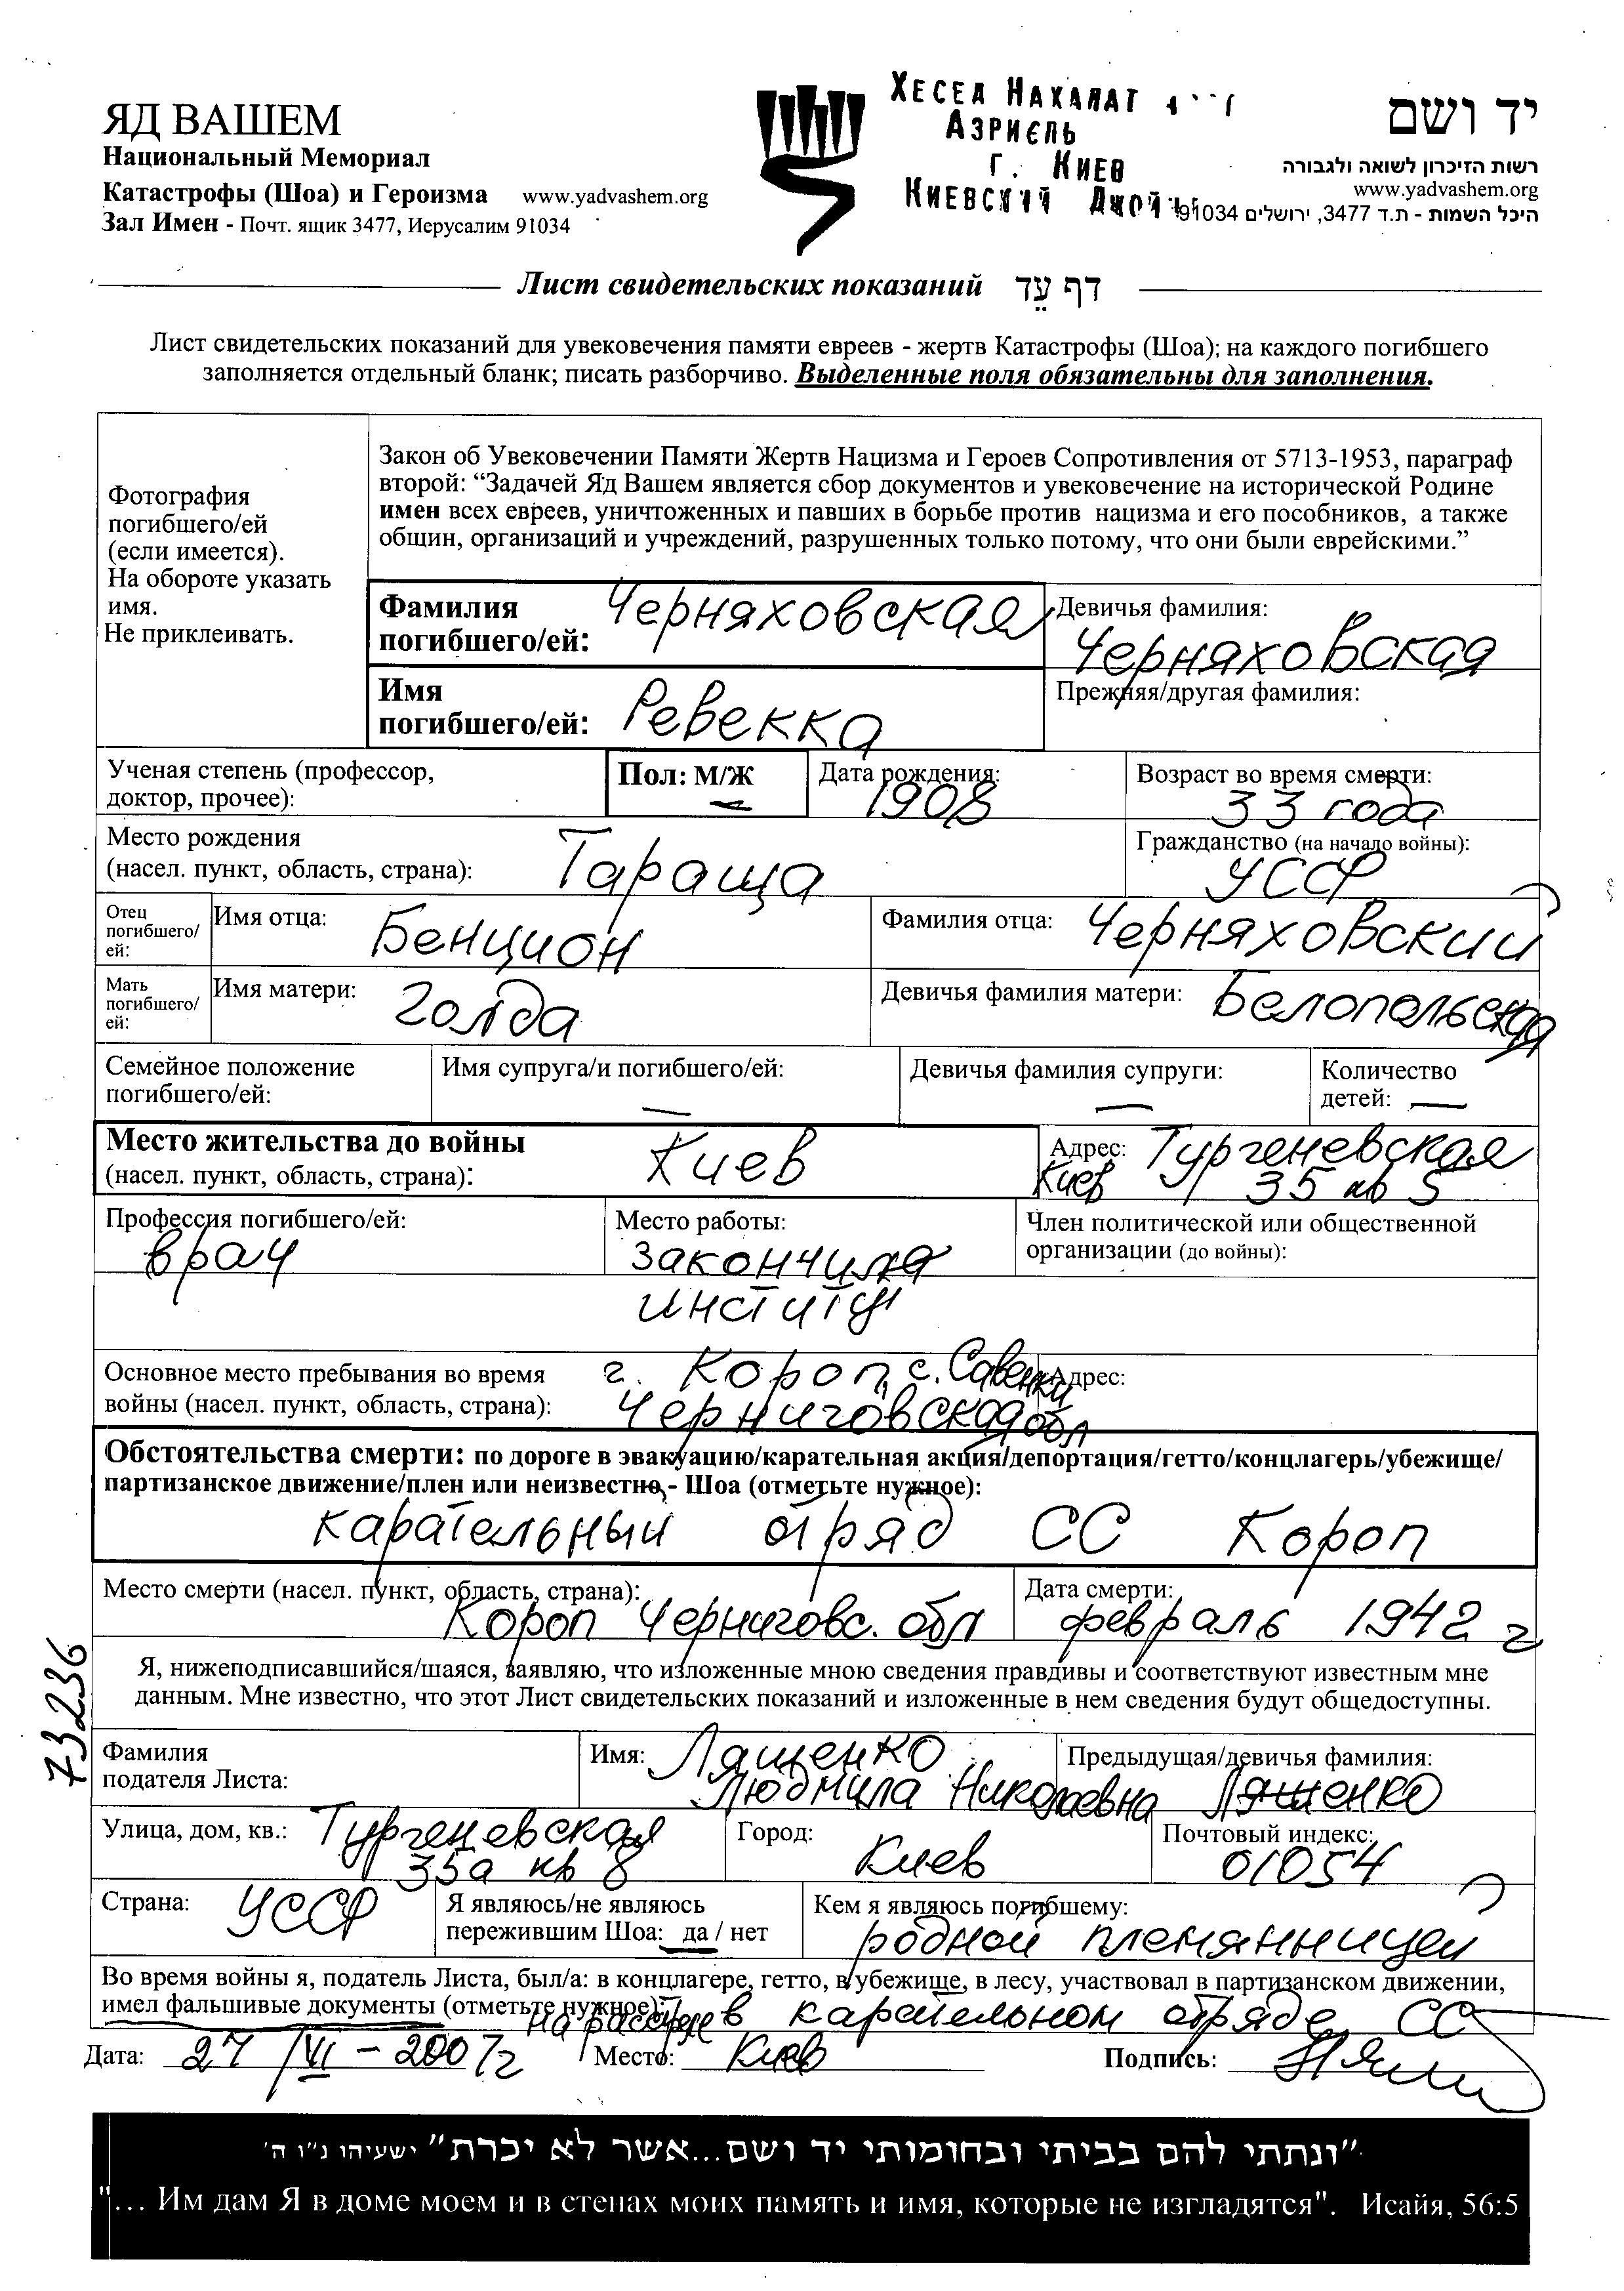 ХЕСЕД НАХАЛАТ
АЗРИЄЛЬ
Г. КИЕВ
КИЕВСКИЙ ДЖОЙНТ
ЯД ВАШЕМ
Национальный Мемориал
Катастрофы (Шоа) и Героизма www.yadvashem.org
Зал Имен - Почт. ящик 3477, Иерусалим 91034
יד ושם
רשות הזיכרון לשואה ולגבורה
www.yadvashem.org
היכל השמות - ת.ד 3477, ירושלים 91034
Лист свидетельских показаний דף עֵד
Лист свидетельских показаний для увековечения памяти евреев - жертв Катастрофы (Шоа); на каждого погибшего
заполняется отдельный бланк; писать разборчиво. Выделенные поля обязательны для заполнения.
Фотография
погибшего/ей
(если имеется).
На обороте указать
имя.
Не приклеивать.
Закон об Увековечении Памяти Жертв Нацизма и Героев Сопротивления от 5713-1953, параграф
второй: “Задачей Яд Вашем является сбор документов и увековечение на исторической Родине
имен всех евреев, уничтоженных и павших в борьбе против нацизма и его пособников, а также
общин, организаций и учреждений, разрушенных только потому, что они были еврейскими.”
Фамилия
погибшего/ей: Черняховская
Девичья фамилия:
Черняховская
Имя
погибшего/ей: Ревекка
Прежняя/другая фамилия:
Ученая степень (профессор,
доктор, прочее):
Пол: М/Ж
Дата рождения:
1908
Возраст во время смерти:
33 года
Место рождения
(насел. пункт, область, страна): Тараща
Гражданство (на начало войны):
УССР
Отец
погибшего/
ей:
Имя отца: Бенцион
Фамилия отца: Черняховский
Мать
погибшего/
ей:
Имя матери: Голда
Девичья фамилия матери: Белопольская
Семейное положение
погибшего/ей:
Имя супруга/и погибшего/ей:
—
Девичья фамилия супруги:
—
Количество
детей: —
Место жительства до войны
(насел. пункт, область, страна): Киев
Адрес: Тургеневская
Киев 35 кв 5
Профессия погибшего/ей:
врач
Место работы:
закончила
институт
Член политической или общественной
организации (до войны):
Основное место пребывания во время
войны (насел. пункт, область, страна):
г. Короп, с. Савенки
Черниговская обл
Адрес:
Обстоятельства смерти: по дороге в эвакуацию/карательная акция/депортация/гетто/концлагерь/убежище/
партизанское движение/плен или неизвестно,- Шоа (отметьте нужное):
карательный отряд СС Короп
Место смерти (насел. пункт, область, страна):
Короп Черниговс. обл
Дата смерти:
февраль 1942 г
Я, нижеподписавшийся/шаяся, заявляю, что изложенные мною сведения правдивы и соответствуют известным мне
данным. Мне известно, что этот Лист свидетельских показаний и изложенные в нем сведения будут общедоступны.
73236
Фамилия
подателя Листа:
Имя: Лященко
Людмила Николаевна
Предыдущая/девичья фамилия:
Лященко
Улица, дом, кв.: Тургеневская
35а кв 8
Город:
Киев
Почтовый индекс:
01054
Страна: УССР
Я являюсь/не являюсь
пережившим Шоа: да / нет
Кем я являюсь погибшему:
родной племянницей
Во время войны я, податель Листа, был/а: в концлагере, гетто, в убежище, в лесу, участвовал в партизанском движении,
имел фальшивые документы (отметьте нужное):
на расстреле в карательном отряде СС
Дата: 27/VI – 2007г Место: Киев Подпись:
"ונתתי להם בביתי ובחומותי יד ושם...אשר לא יכרת" ישעיהו נ"ו ה'
"... Им дам Я в доме моем и в стенах моих память и имя, которые не изгладятся". Исайя, 56:5